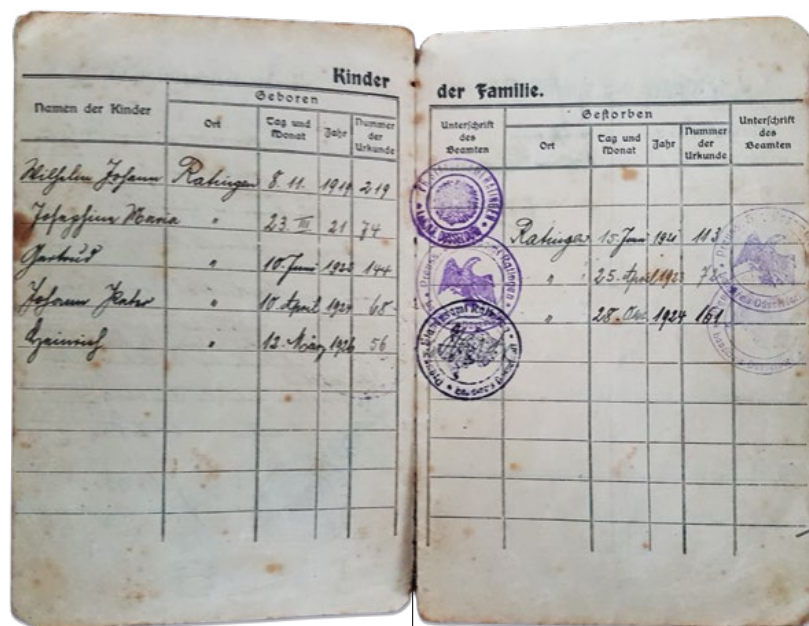 Kinder
Namen der Kinder
Geboren
Ort
Tag und Monat
Jahr
Nummer der Urkunde
Wilhelm Johann Ratingen 8. 11. 1919 219
Josephine Maria " 23. III 21 74
Gertrud " 10. Juni 1922 144
Johann Peter " 10. April 1924 68
Heinrich " 12. März 1926 56
der Familie.
Unterschrift des Beamten
Gestorben
Ort
Tag und Monat
Jahr
Nummer der Urkunde
Unterschrift des Beamten
Ratingen 15. Juni 1921 113
" 25. April 1923 72
" 28. 1924 161